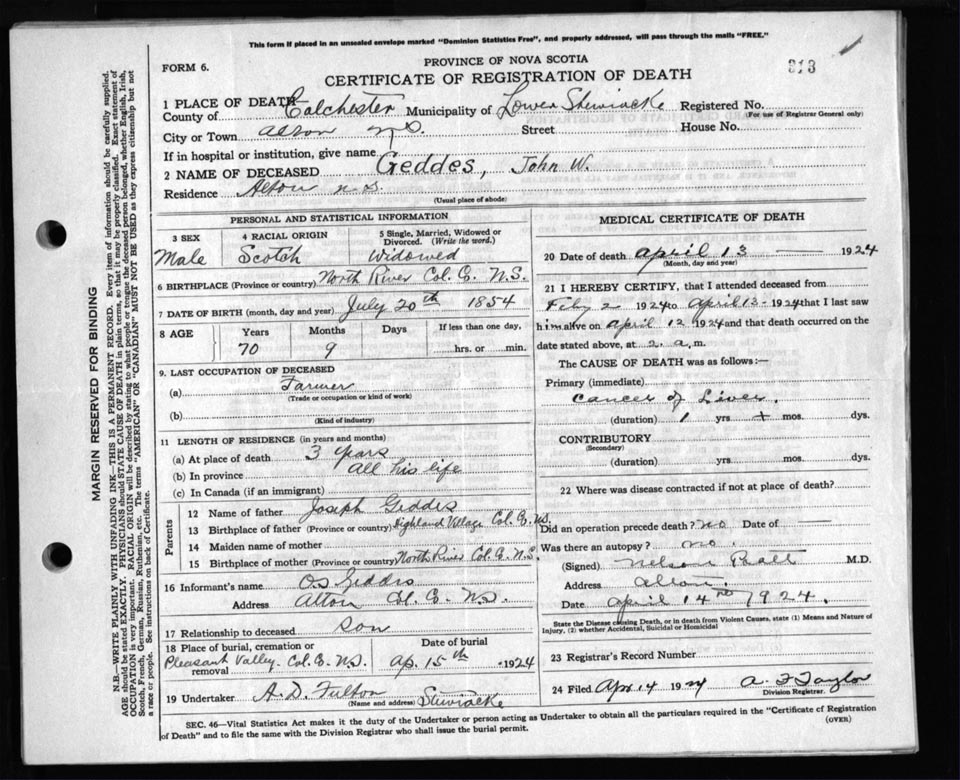 This form if placed in an unsealed envelope marked "Dominion Statistics Free", and properly addressed, will pass through the mails "FREE."
FORM 6.
PROVINCE OF NOVA SCOTIA
CERTIFICATE OF REGISTRATION OF DEATH
813
1 PLACE OF DEATH—
County of Colchester Municipality of Lower Stewiacke Registered No.
(For use of Registrar General only)
City or Town Alton N.S. Street House No.
If in hospital or institution, give name
2 NAME OF DECEASED Geddes, John W.
Residence Alton N.S.
(Usual place of abode)
PERSONAL AND STATISTICAL INFORMATION
3 SEX 4 RACIAL ORIGIN 5 Single, Married, Widowed or Divorced. (Write the word.)
Male Scotch Widowed
6 BIRTHPLACE (Province or country) North River Col. Co. N.S.
7 DATE OF BIRTH (month, day and year) July 20th 1854
8 AGE Years Months Days If less than one day,
70 9 hrs. or min.
9. LAST OCCUPATION OF DECEASED
(a) Farmer
(Trade or occupation or kind of work)
(b)
(Kind of industry)
11 LENGTH OF RESIDENCE (in years and months)
(a) At place of death 3 years
(b) In province all his life
(c) In Canada (if an immigrant)
Parents
12 Name of father Joseph Geddes
13 Birthplace of father (Province or country) Highland Village Col. Co. N.S.
14 Maiden name of mother
15 Birthplace of mother (Province or country) North River Col. Co. N.S.
16 Informant's name Geddes
Address Alton Col. Co. N.S.
17 Relationship to deceased Son
18 Place of burial, cremation or removal Date of burial
Pleasant Valley. Col. Co. N.S. Ap. 15th -1924
19 Undertaker A. D. Fulton Stewiacke
(Name and address)
MEDICAL CERTIFICATE OF DEATH
20 Date of death April 13 1924
(Month, day and year)
21 I HEREBY CERTIFY, that I attended deceased from
Feby 2 1924 to April 13- 1924 that I last saw
him alive on April 12 1924 and that death occurred on the
date stated above, at 2. a.m.
The CAUSE OF DEATH was as follows:—
Primary (immediate)
Cancer of Liver.
(duration) 1 yrs + mos. dys.
CONTRIBUTORY
(Secondary)
(duration) yrs. mos. dys.
22 Where was disease contracted if not at place of death?
Did an operation precede death? no Date of
Was there an autopsy? no.
(Signed) Nelson Pratt M.D.
Address Alton.
Date April 14 1924.
State the Disease causing Death, or in death from Violent Causes, state (1) Means and Nature of Injury, (2) whether Accidental, Suicidal or Homicidal
23 Registrar's Record Number
24 Filed Apr 14 1924 A. F Taylor
Division Registrar.
SEC. 46—Vital Statistics Act makes it the duty of the Undertaker or person acting as Undertaker to obtain all the particulars required in the "Certificate of Registration
of Death" and to file the same with the Division Registrar who shall issue the burial permit.
(OVER)
MARGIN RESERVED FOR BINDING
N.B.—WRITE PLAINLY WITH UNFADING INK—THIS IS A PERMANENT RECORD. Every item of information should be carefully supplied.
AGE should be stated EXACTLY. PHYSICIANS should STATE CAUSE OF DEATH in plain terms, so that it may be properly classified. Exact statement of
OCCUPATION is very important. RACIAL ORIGIN will be described by stating to what people or tongue the deceased person belonged, whether English, Irish,
Scotch, French, German, Russian, Ruthenian, etc. The terms "AMERICAN" OR "CANADIAN" MUST NOT BE USED as they express citizenship but not
a race or people. See instructions on back of Certificate.